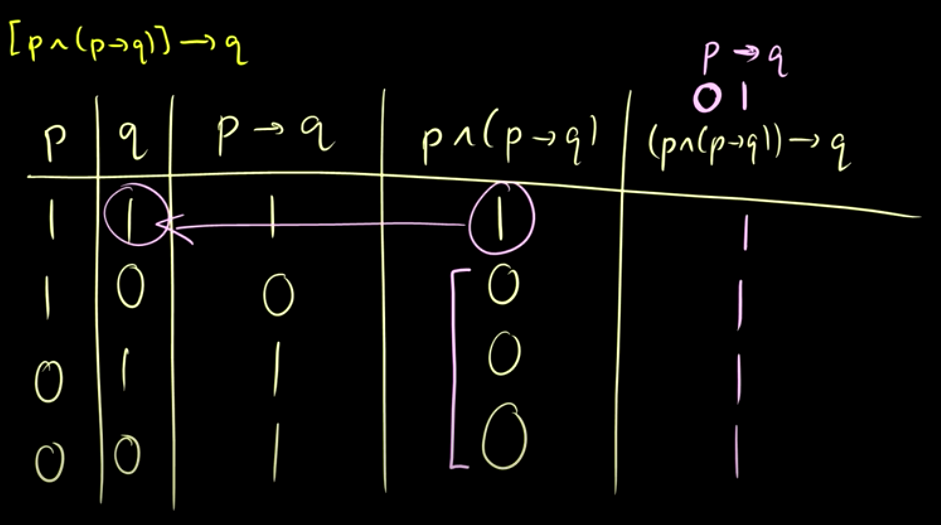 [p∧(p→q)]→q
p→q
0 1
p q p→q p∧(p→q) (p∧(p→q))→q
1 1 1 1 1
1 0 0 0 1
0 1 1 0 1
0 0 1 0 1